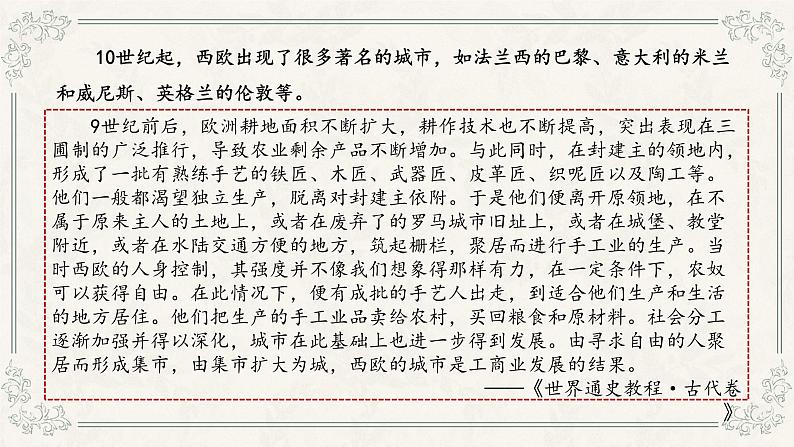 10世纪起，西欧出现了很多著名的城市，如法兰西的巴黎、意大利的米兰
和威尼斯、英格兰的伦敦等。
9世纪前后，欧洲耕地面积不断扩大，耕作技术也不断提高，突出表现在三
圃制的广泛推行，导致农业剩余产品不断增加。与此同时，在封建主的领地内，
形成了一批有熟练手艺的铁匠、木匠、武器匠、皮革匠、织呢匠以及陶工等。
他们一般都渴望独立生产，脱离对封建主依附。于是他们便离开原领地，在不
属于原来主人的土地上，或者在废弃了的罗马城市旧址上，或者在城堡、教堂
附近，或者在水陆交通方便的地方，筑起栅栏，聚居而进行手工业的生产。当
时西欧的人身控制，其强度并不像我们想象得那样有力，在一定条件下，农奴
可以获得自由。在此情况下，便有成批的手艺人出走，到适合他们生产和生活
的地方居住。他们把生产的手工业品卖给农村，买回粮食和原材料。社会分工
逐渐加强并得以深化，城市在此基础上也进一步得到发展。由寻求自由的人聚
居而形成集市，由集市扩大为城，西欧的城市是工商业发展的结果。
——《世界通史教程·古代卷
》